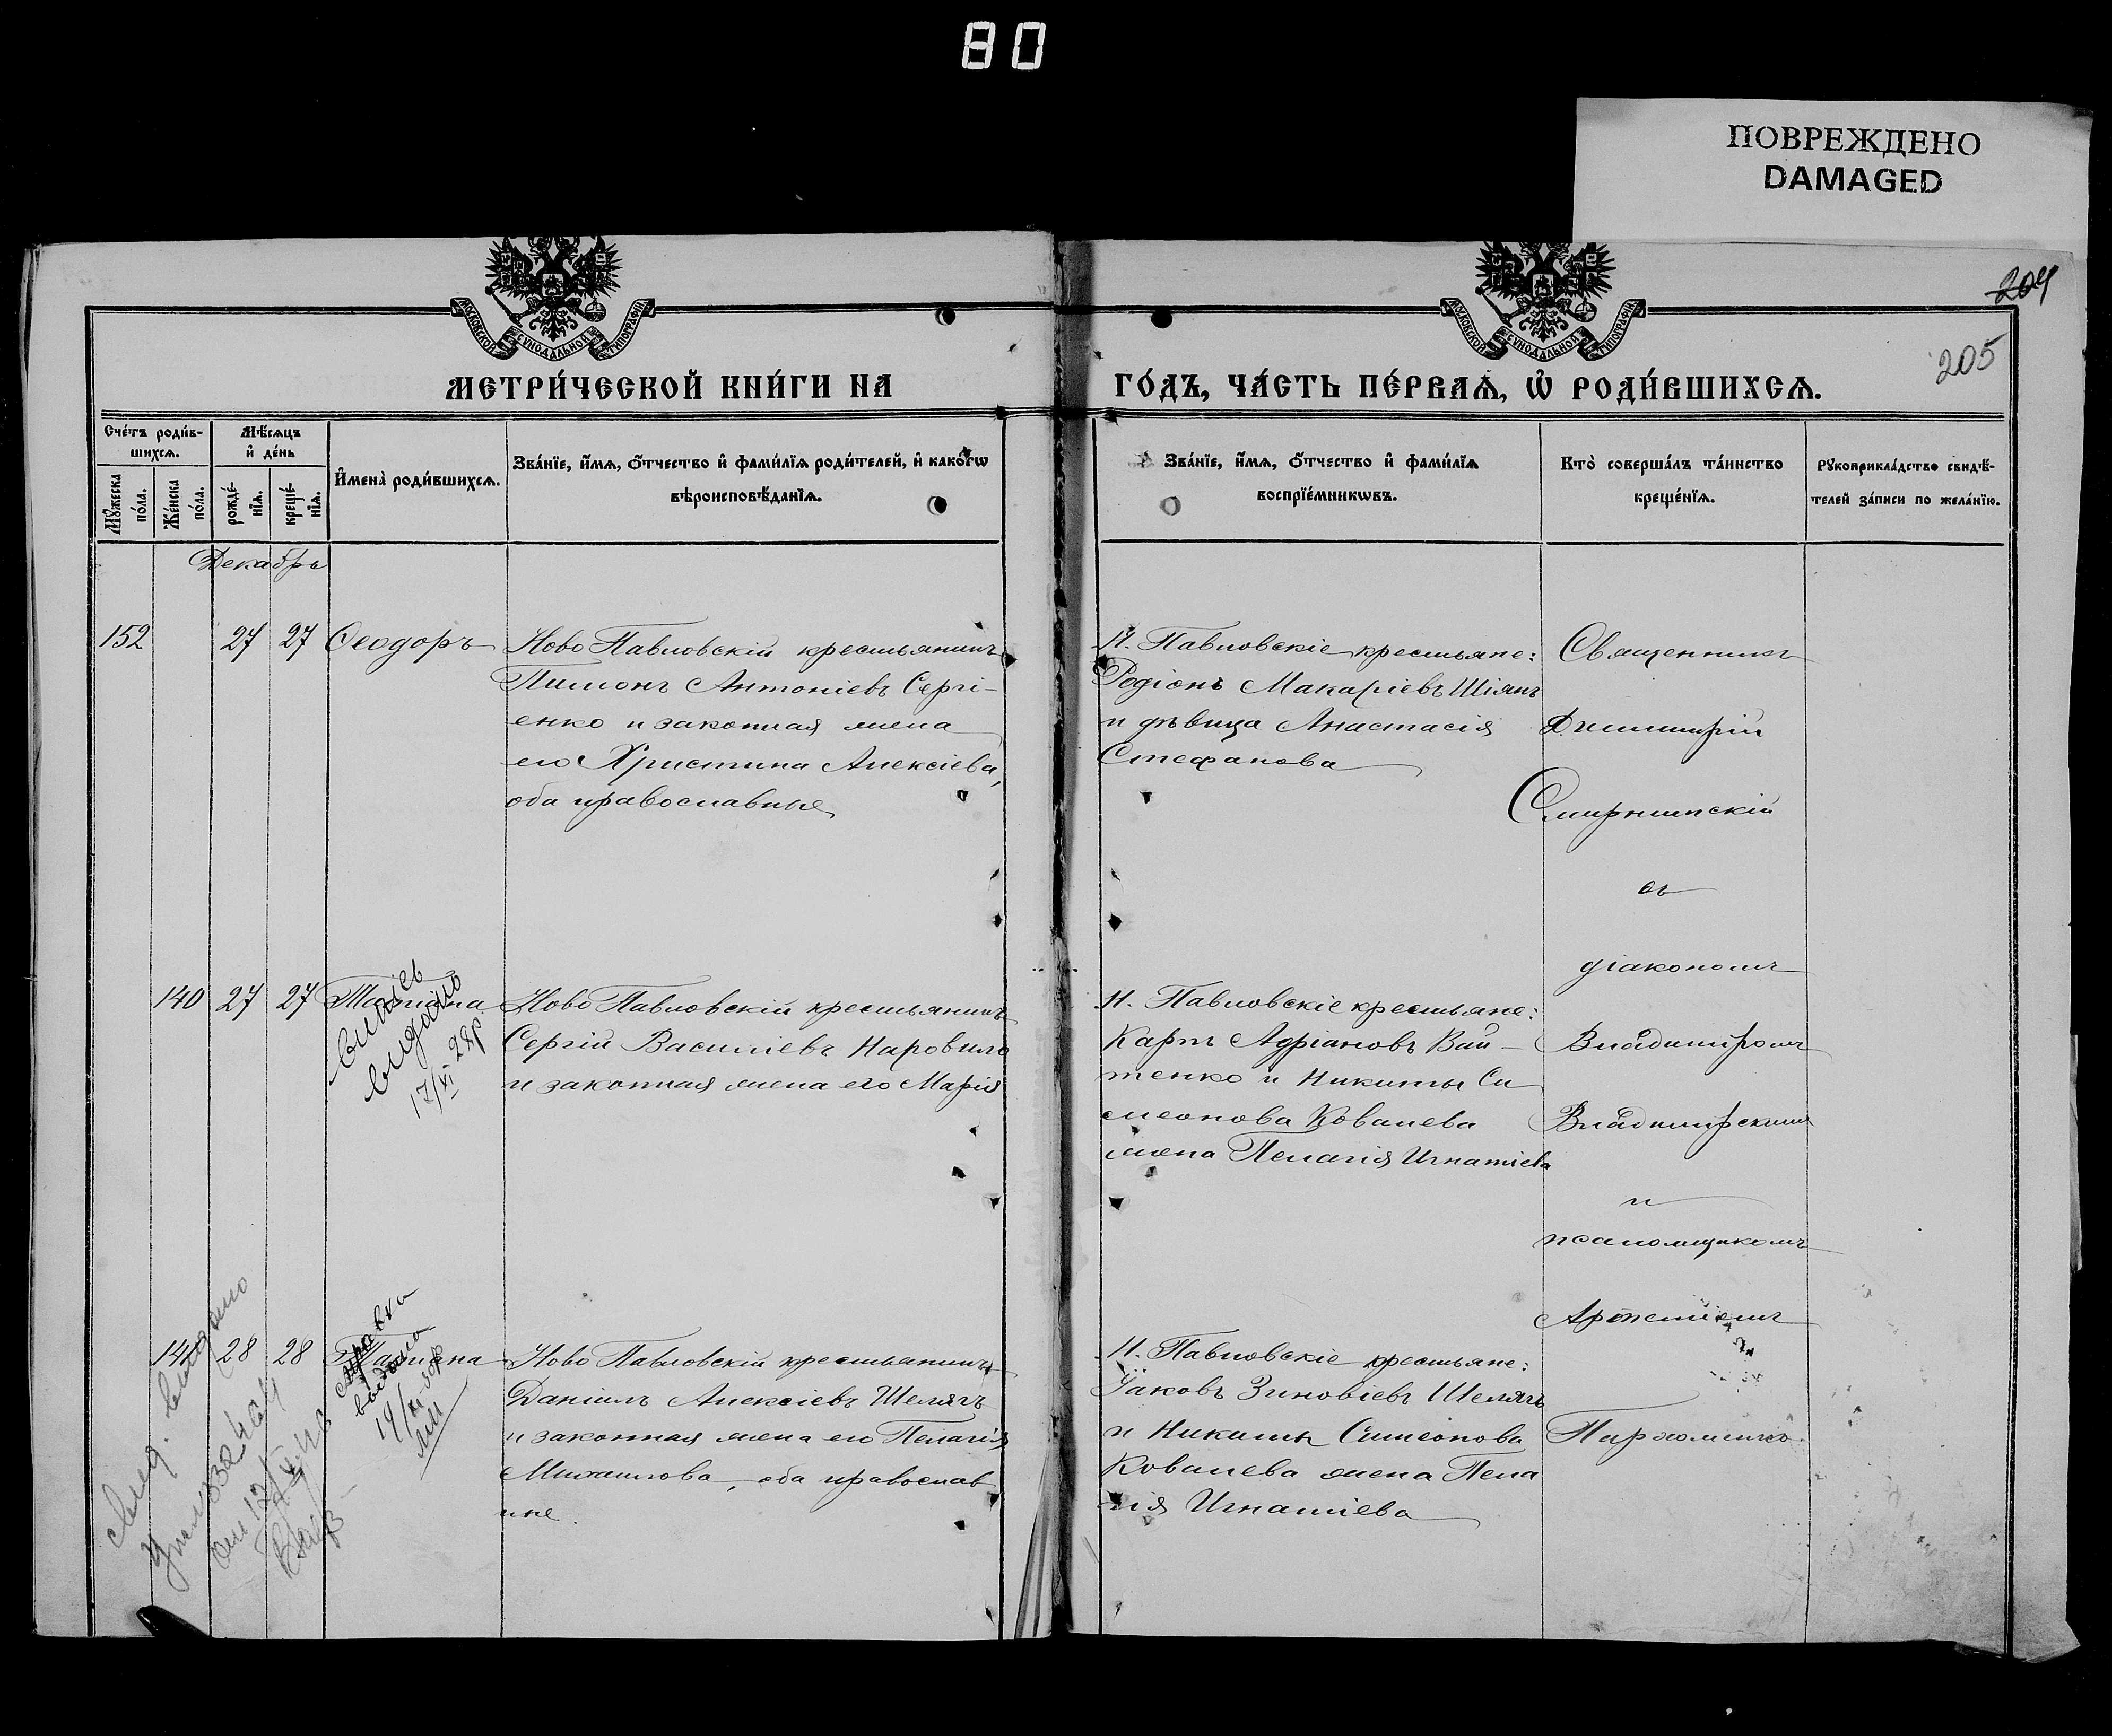 80
ПОВРЕЖДЕНО
DAMAGED
204
205
МОСКОВСКОЙ СУНОДАЛЬНОЙ ТИПОГРАФІИ
МОСКОВСКОЙ СУНОДАЛЬНОЙ ТИПОГРАФІИ
МЕТРИ́ЧЕСКОЙ КНИ́ГИ НА
ГО́ДЪ, ЧА́СТЬ ПЕ́РВАѦ, Ѡ҆ РОДИ́ВШИХСѦ.
Сче́тъ роди́в-
шихсѧ.
Мꙋ́жеска
по́ла.
Же́нска
по́ла.
Мѣ́сѧцъ
и҆ де́нь
рожде́-
нїѧ.
креще́-
нїѧ.
И҆мена̀ роди́вшихсѧ.
Зва́нїе, и҆́мѧ, ѻ҆́тчество и҆ фами́лїѧ роди́телей, и҆ како́гѡ
вѣроисповѣ́данїѧ.
Зва́нїе, и҆́мѧ, ѻ҆́тчество и҆ фами́лїѧ
воспрїе́мникѡвъ.
Кто̀ соверша́лъ та́инство
креще́нїѧ.
Рꙋкоприкла́дство свидѣ́-
телей за́писи по жела́нїю.
Декабрь
152
27
27
Ѳеодоръ
Ново Павловскій крестьянинъ
Пимонъ Антоніевъ Сергі-
енко и законная жена
его Христина Алексіева,
оба православные
Н. Павловскіе крестьяне:
Родіонъ Макаріевъ Шіянъ
и дѣвица Анастасія
Стефанова
Священникъ
Димитрій
Смирнитскій
съ
діакономъ
Владиміромъ
Владимірскимъ
и
псаломщикомъ
Артеміемъ
Пархоменко
140
27
27
Татіана
видано
17/XI 28р
Ново Павловскій крестьянинъ
Сергій Василіевъ Наровило
и законная жена его Марія
Н. Павловскіе крестьяне:
Карпъ Адріановъ Вай-
тенко и Никиты Си
меонова Ковалева
жена Пелагія Игнатіева
141
28
28
Татіана
справка
выдана
19/XI
Ново Павловскій крестьянинъ
Даніилъ Алексіевъ Шелягъ
и законная жена его Пелагія
Михаилова, оба православ
ные.
Н. Павловскіе крестьяне:
Іаковъ Зиновіевъ Шелягъ
и Никиты Симеонова
Ковалева жена Пела
гія Игнатіева